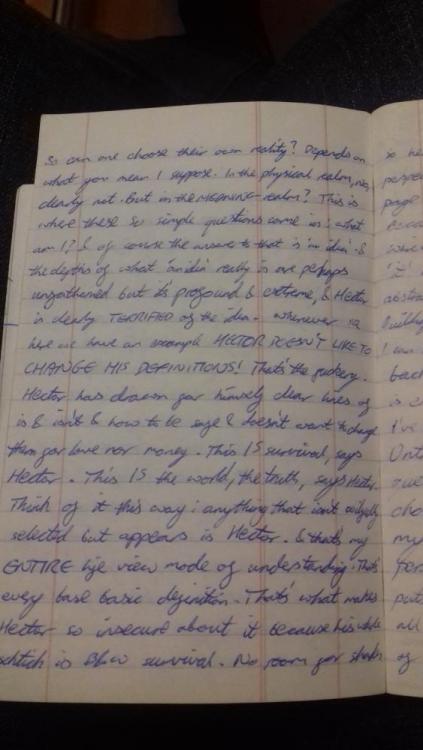 So can one choose their own reality? Depends on
what you mean I suppose. In the physical realm, no,
clearly not. But in the MEANING-realm? This is
where these so simple questions come in: what
am I? & of course the answer to that is 'an idea' &
the depths of what 'an idea' really is are perhaps
unfathomed but it's profound & extreme, & Hector
is clearly TERRIFIED of the idea. Whenever
here we have an example HECTOR DOESN'T LIKE TO
CHANGE HIS DEFINITIONS! That's the fuckery.
Hector has drawn for himself clear lines of
is & isn't & how to be safe & doesn't want to change
them for love nor money. This IS survival, says
Hector. This IS the world, the truth, says Hector.
Think of it this way: anything that isn't
selected but appears is Hector. & that's my
ENTIRE life view mode of understanding. That's
every base basic definition. That's what makes
Hector so insecure about it because his whole
schtick is B&W survival. No room for shades
so
perspe
page
abstra
build
I can
back
is
I've
Onto
cho
my
per
put
all
of